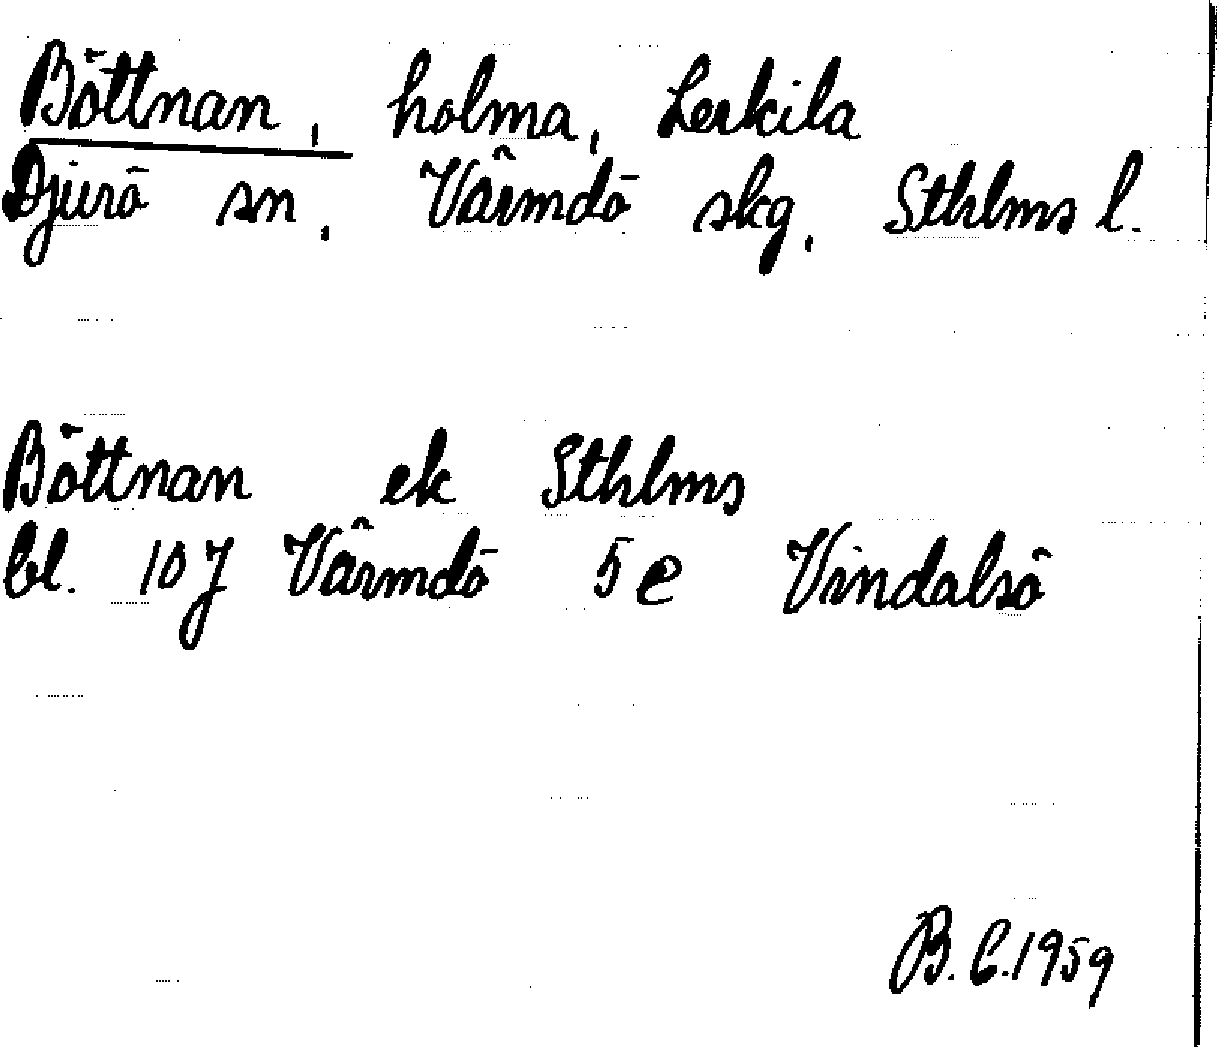 Böttnan, holma, Lerkila
Djurö sn. Värmdö skg. Sthlms l.
Böttnan ek Sthlms
bl. 107 Värmdö 5e Vindalsö
B.C.1959